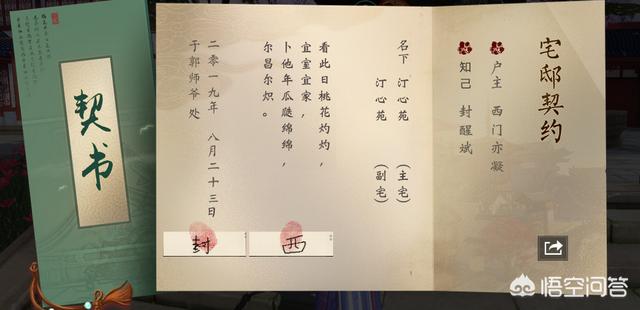 宅邸契约
户主 西门亦凝
知己 封醒斌
名下 汀心苑 (主宅)
汀心苑 (副宅)
看此日桃花灼灼，
宜室宜家，
卜他年瓜瓞绵绵，
尔昌尔炽。
二零一九年 八月二十三日
于郭师爷处
西
封
契书
悟空问答